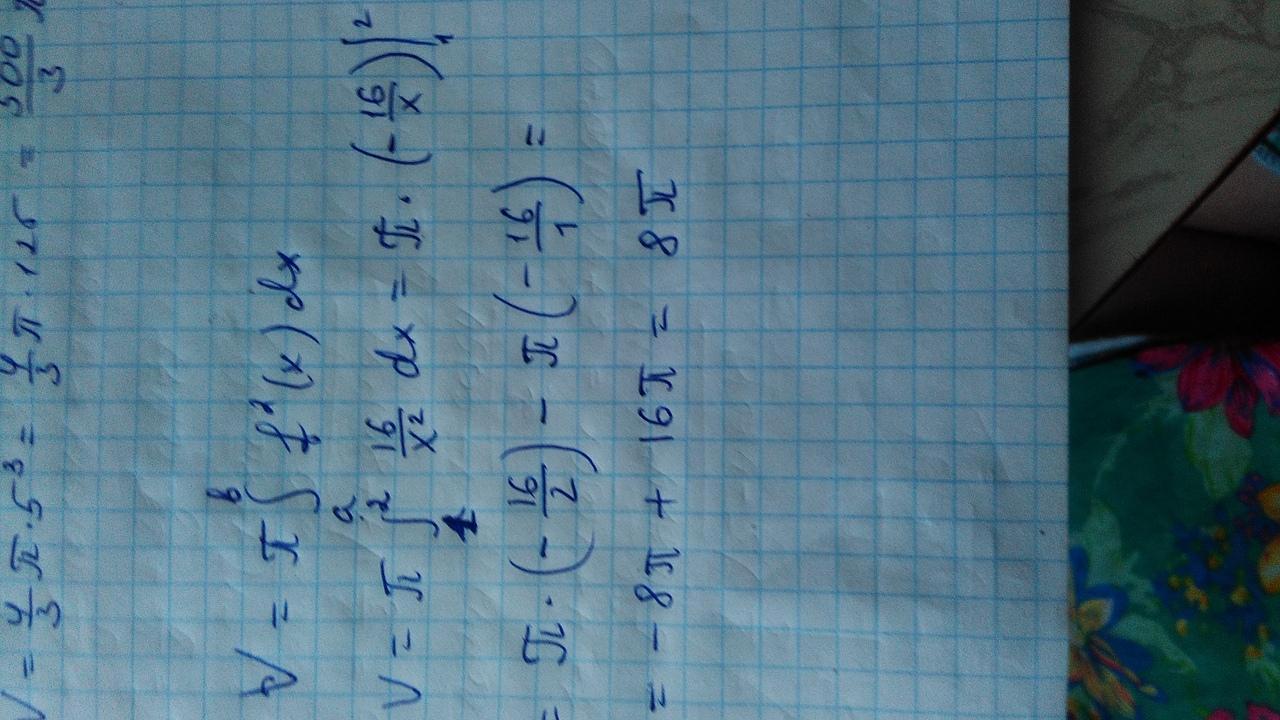 V = 4/3 π · 5³ = 4/3 π · 125 = 500/3 π
V = π ∫ₐᵇ f²(x) dx
V = π ∫₁² 16/x² dx = π · (-16/x)|₁²
= π · (-16/2) - π (-16/1) =
= -8π + 16π = 8π